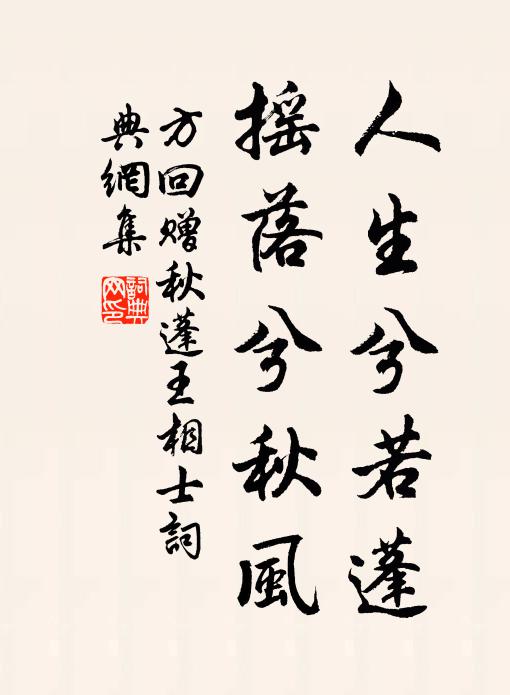 人生兮若蓬
摇落兮秋風
方回赠秋蓬王相士詞
典網集
詞典网印